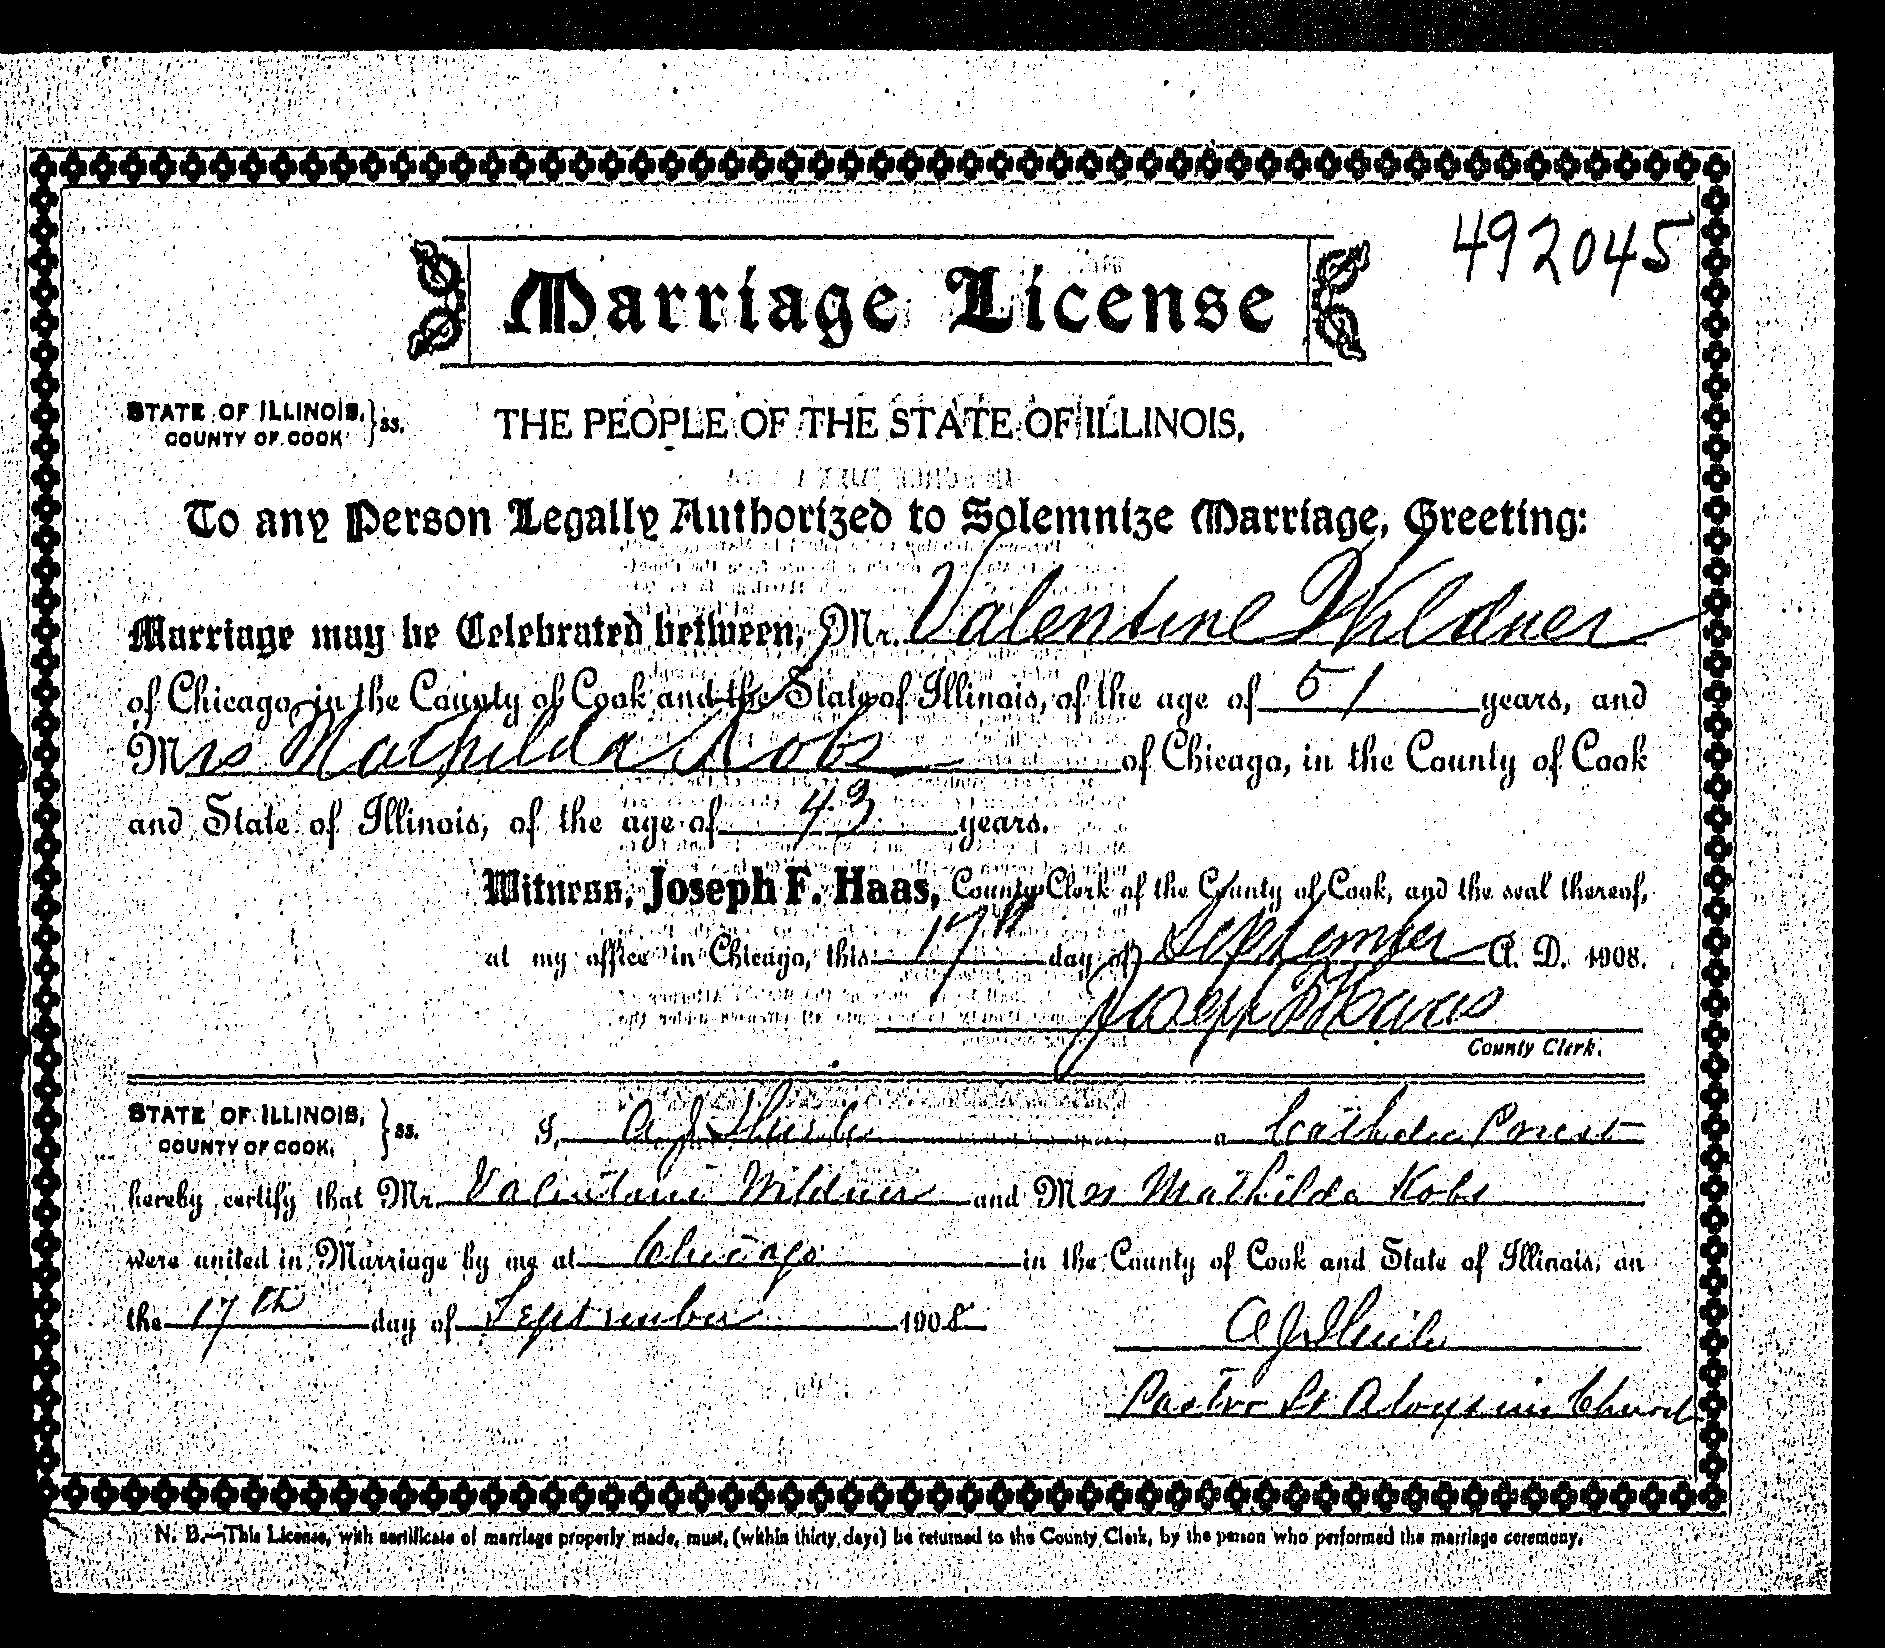 492045
Marriage License
STATE OF ILLINOIS, } ss.
COUNTY OF COOK
THE PEOPLE OF THE STATE OF ILLINOIS,
To any Person Legally Authorized to Solemnize Marriage, Greeting:
Marriage may be Celebrated between, Mr. Valentine Wildner
of Chicago, in the County of Cook and the State of Illinois, of the age of 51 years, and
Mrs Mathilda Kobs of Chicago, in the County of Cook
and State of Illinois, of the age of 43 years.
Witness, Joseph F. Haas, County Clerk of the County of Cook, and the seal thereof,
at my office in Chicago, this 17th day of September A. D. 1908.
Joseph F Haas
County Clerk.
STATE OF ILLINOIS, } ss.
COUNTY OF COOK,
I, A. J. a Catholic Priest
hereby certify that Mr. Wildner and Mrs Mathilda Kobs
were united in Marriage by me at Chicago in the County of Cook and State of Illinois, on
the 17th day of September 1908
A J
Pastor St Aloysius Church
N. B.—This License, with certificate of marriage properly made, must, (within thirty days) be returned to the County Clerk, by the person who performed the marriage ceremony.